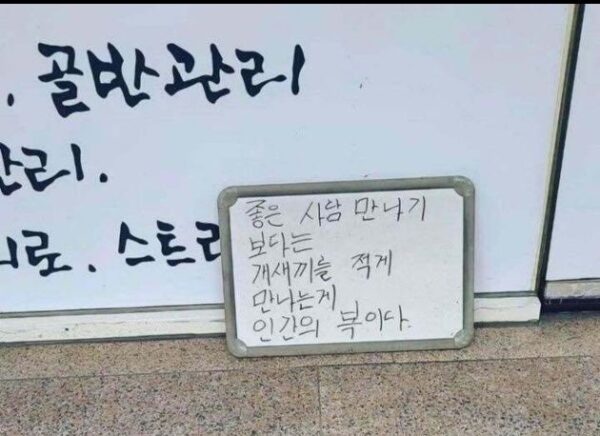 . 골반관리
관리.
로. 스트리
좋은 사남 만나기
보다는
개새끼를 적게
만나는게
인간의 복이다.